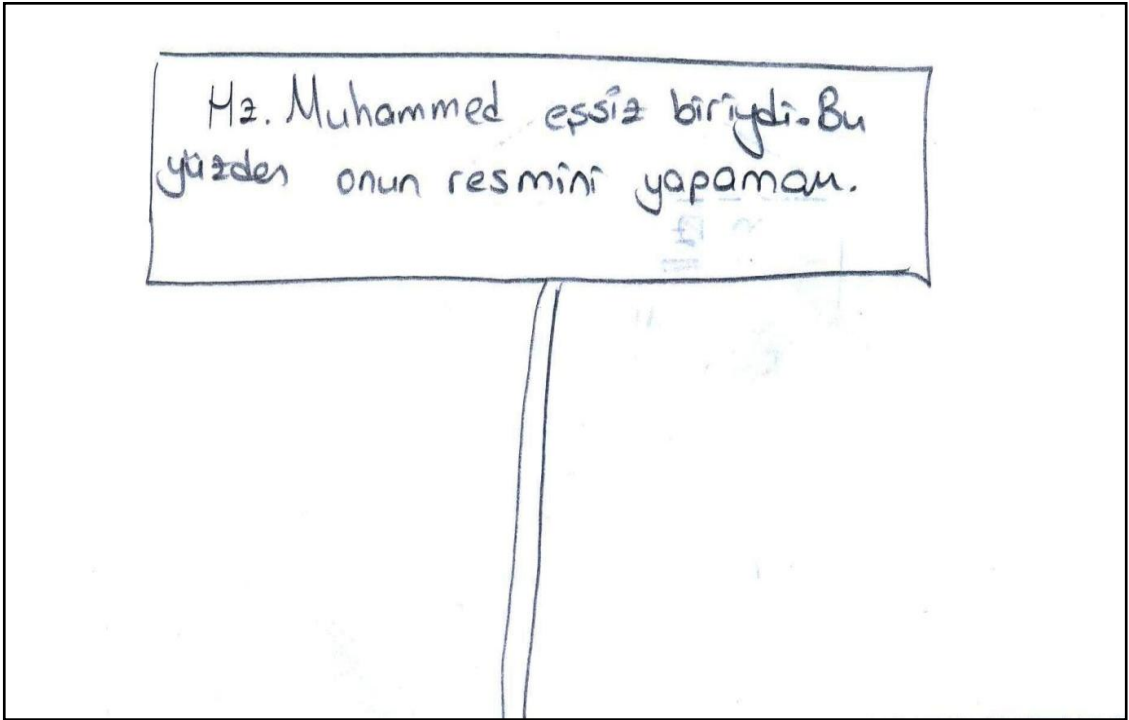 Hz. Muhammed eşsiz biriydi. Bu
yüzden onun resmini yapamam.